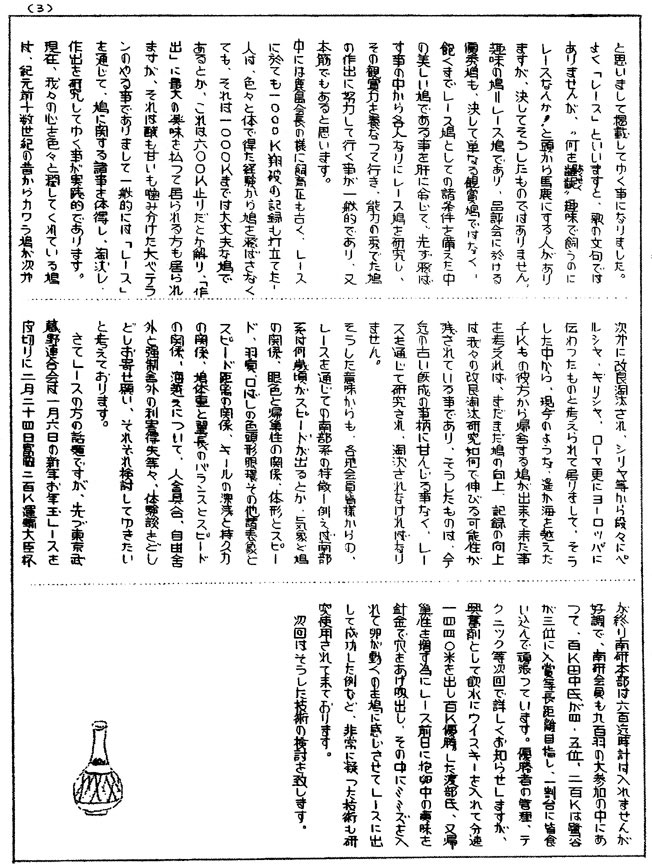 (3)
と思いまして掲載してゆく事になりました。
よく「レース」といいますと、歌の文句では
ありませんが、"何を
趣味で飼うのに
レースなんか！と頭から馬鹿にする人があり
ますが、決してそうしたものではありません。
趣味の鳩＝レース鳩であり、品評会に於ける
優秀鳩も、決して単なる観賞鳩ではなく、
飽くまでレース鳩としての諸条件を備えた中
の美しい鳩である事を肝に命じて、先ず飛ば
す事の中から各人なりにレース鳩を研究し、
その観賞力を養なって行き、能力の秀でた鳩
の作出に努力して行く事が一般的であり、又
本筋でもあると思います。
中には鹿島会長の様に飼育も古く、レース
に於ても一〇〇〇K翔破の記録も打立てた
人は、色々と体で得た経験から鳩を飛ばさなく
ても、それは一〇〇〇Kまでは大丈夫な鳩で
あるとか、これは六〇〇K止りだとか解り、「作
出」に最大の興味を払って居られる方も居られ
ますが、それは酸も甘いも噛み分けた大ベテラ
ンのやる事でありまして一般的には「レース」
を通じて、鳩に関する諸事を体得し、淘汰し、
作出を研究してゆく事が実践的であります。
現在、我々の心を色々と潤してくれている鳩
は、紀元前十数世紀の昔からカワラ鳩が次か
次かに改良淘汰され、シリヤ等から段々にペ
ルシャ、ギリシャ、ローマ更にヨーロッパに
伝わったものと考えられて居りまして、そう
した中から、現今のような、遥か海を越えた
千Kもの彼方から帰舎する鳩が出来て来た事
を考えれば、まだまだ鳩の向上、記録の向上
は我々の改良淘汰研究如何で伸びる可能性が
残されている事であり、そうしたものは、今
迄の古い既成の事柄に甘んじる事なく、レー
スを通じて研究され、淘汰されなければなり
ません。
そうした意味からも、各飛会員皆様からの、
レースを通じての南部系の特徴＝例えば南部
系は何歳頃からスピードが出るとか、気象と鳩
の関係、眼色と帰巣性の関係、体形とスピー
ド、羽質、口ばしの色頭形眼環その他諸表象と
スピード距離の関係、キールの深浅と持久力
の関係、鳩体重と翼長のバランスとスピード
の関係、海越えについて、人舎具合、自由舎
外と強制舎外の利害得失等々、体験談をどし
どしお寄せ願い、それぞれ検討してゆきたい
と考えております。
さてレースの方の話題ですが、先づ東京武
蔵野連合会は一月六日の新年お年玉レースを
皮切りに二月二十四日
二百K運輸大臣杯
が終り南研本部は六百近時計は入れませんが
好調で、南研会員も九百羽の大参加の中にあ
って、百K田中氏が四・五位、二百Kは
が三位に入賞等長距離目指し、一割台に皆食
い込んで頑張っています。優勝者の管理、テ
クニック等次回で詳しくお知らせしますが、
興奮剤として飲水にウイスキーを入れて分速
一四四〇米を出し百K優勝した渡部氏、又帰
巣性を増す為にレース前日に抱卵中の
を
針金で穴をあけ吹出し、その中にミミズを入
れて卵が動くのを鳩に感じさせてレースに出
して成功した例など、非常に凝った技術も研
究使用されて来ております。
次回はそうした技術の検討を致します。